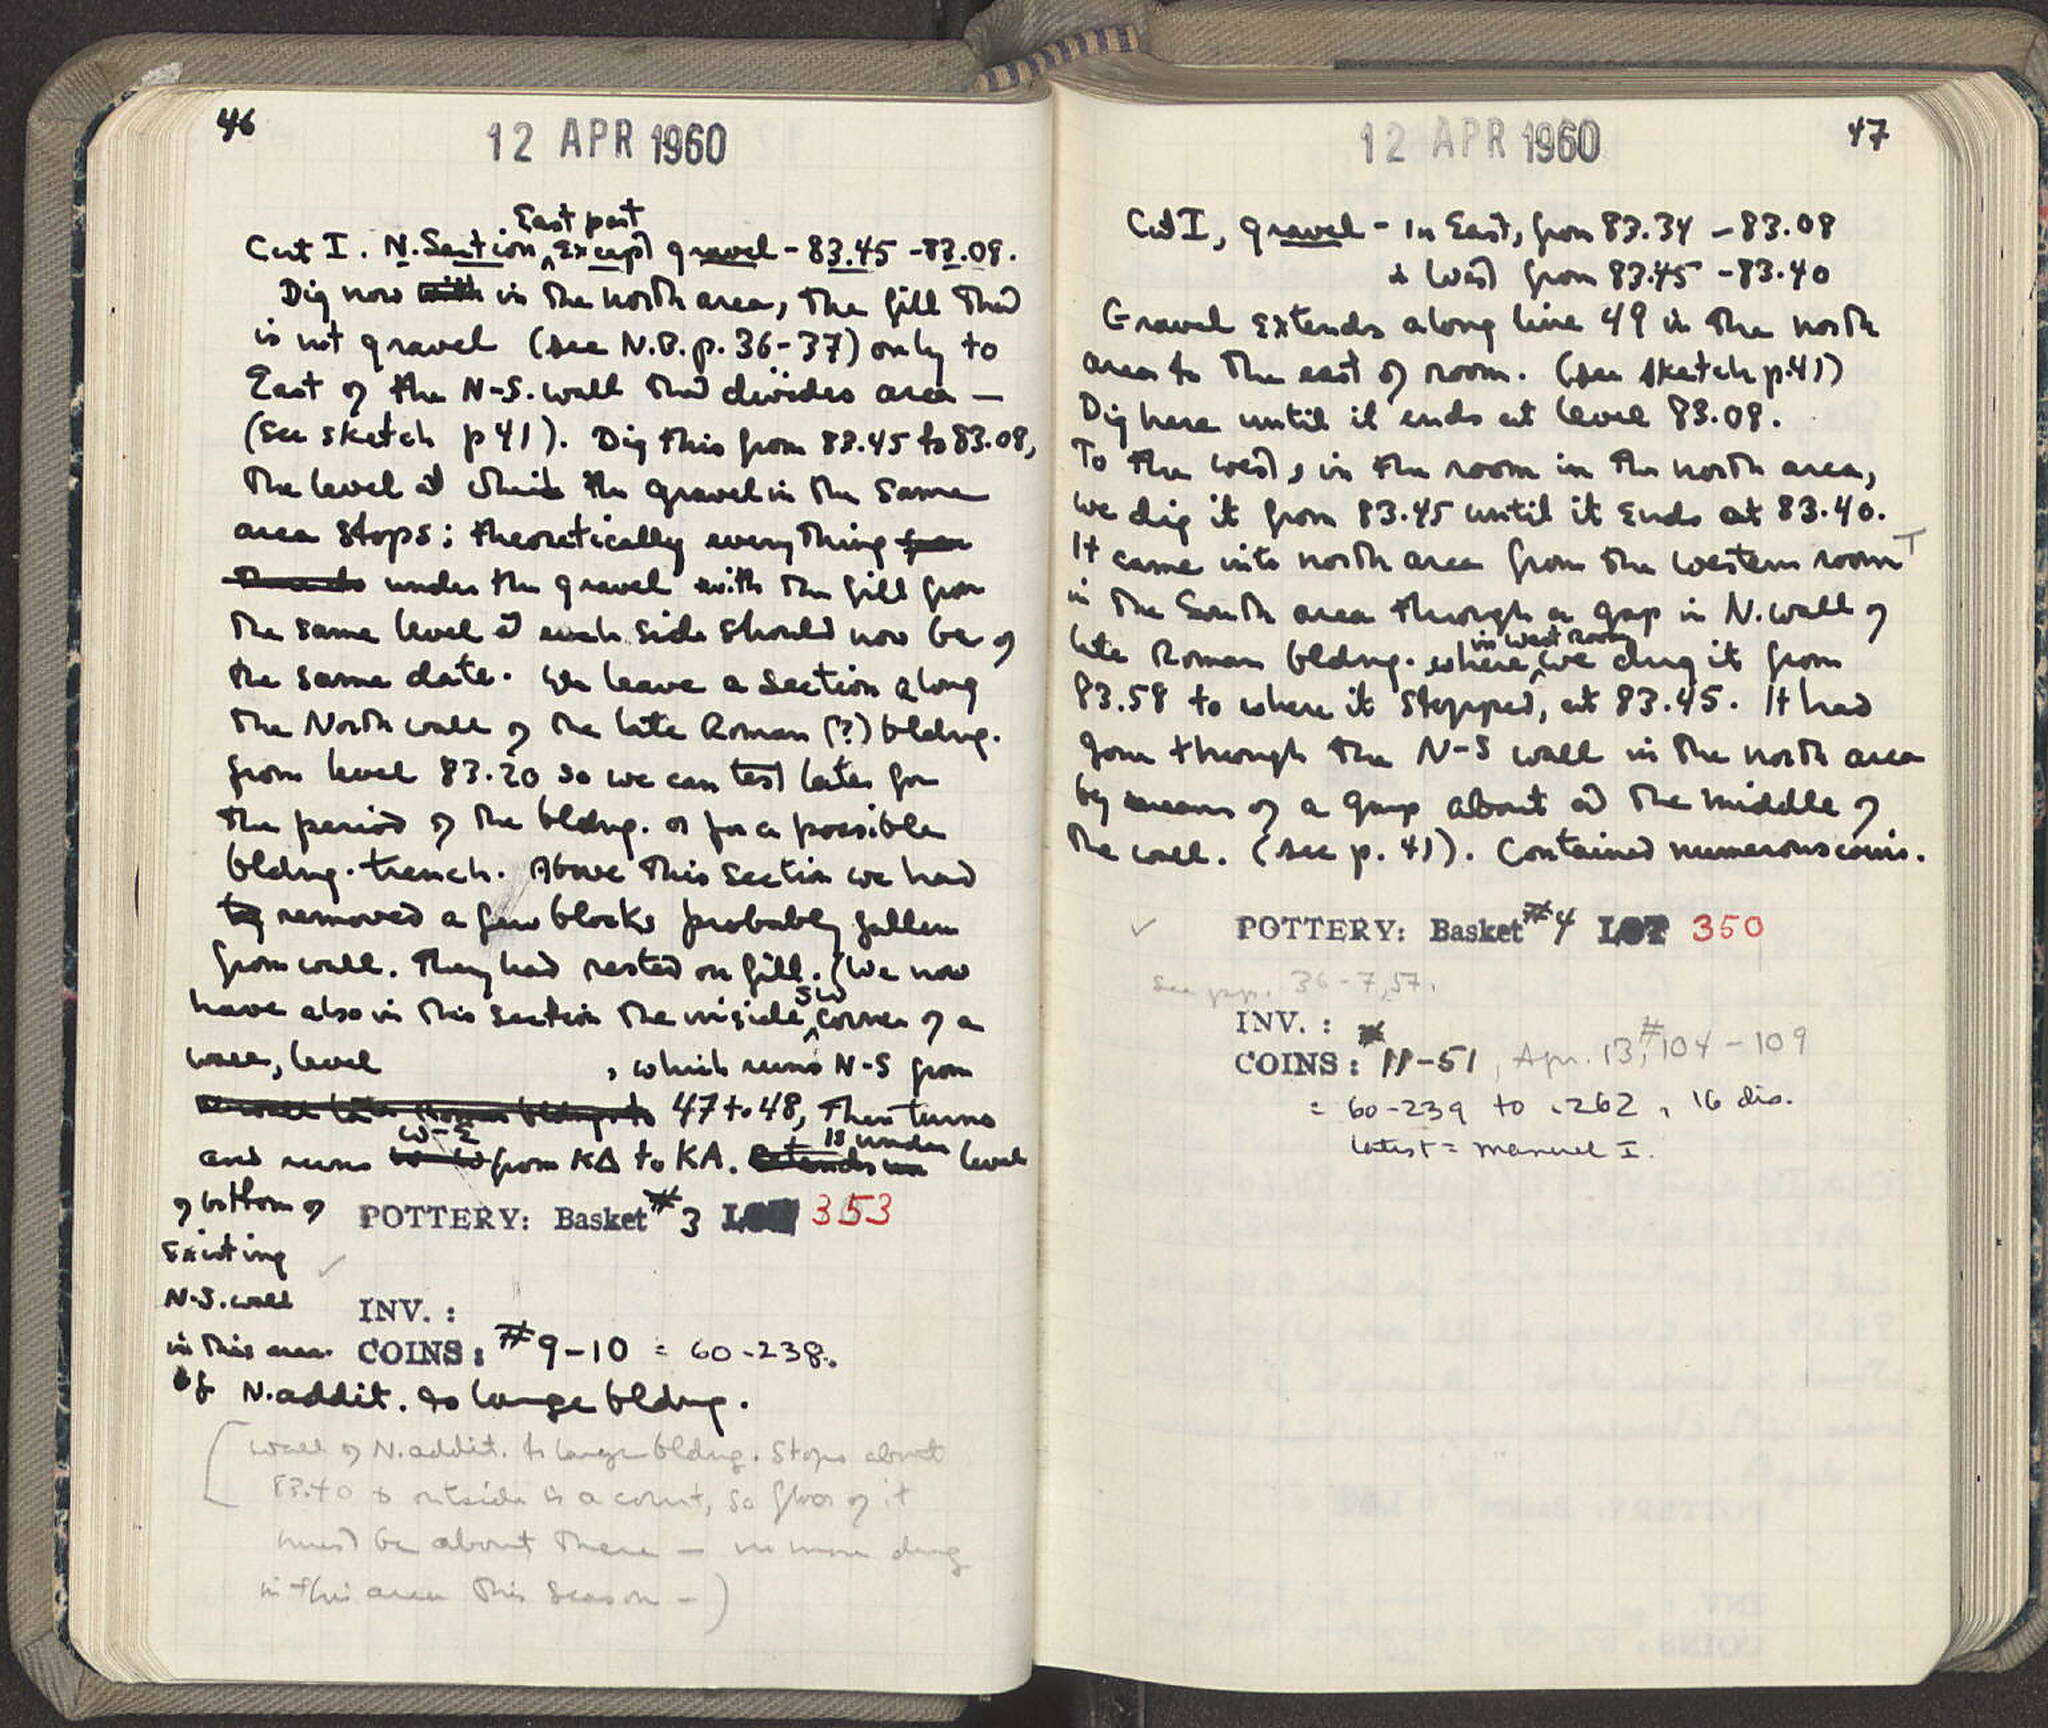 46
12 APR 1960
East part
Cut I. N. Section ^ Except gravel - 83.45 - 83.08.
Dig now in the north area, the fill that
is not gravel (see N.B. p. 36-37) only to
East of the N-S. wall that divides area —
(see sketch p 41). Dig this from 83.45 to 83.08,
the level at which the gravel in the same
area stops; theoretically everything
under the gravel with the fill from
the same level at each side should now be of
the same date. We leave a section along
the North wall of the late Roman (?) bldng.
from level 83.20 so we can test later for
the period of the bldng. or for a possible
bldng. trench. Above this section we had
removed a few blocks probably fallen
from wall. They had rested on fill. (We now
SW
have also in this section the inside ^ corner of a
wall, level , which runs N-S from
47 to 48, then turns
W-E is under
and runs from ΚΔ to ΚΑ. level
of bottom of
existing
N-S. wall
in this area.
POTTERY: Basket #3 LOT 353
INV. :
COINS: #9-10 = 60-238.
of N. addit. to large bldng.
[ Wall of N. addit. to large bldng. Stops about
83.40 & outside is a court, so floor of it
must be about there — no more dug
in this area this season - )
12 APR 1960
47
Cut I, gravel - in East, from 83.34 - 83.08
& West from 83.45 - 83.40
Gravel extends along line 49 in the north
area to the east of room. (see sketch p. 41)
Dig here until it ends at level 83.08.
To the west, in the room in the north area,
we dig it from 83.45 until it ends at 83.40.
It came into north area from the western room
in the South area through a gap in N. wall of
in west room
late Roman bldng. where ^ we dug it from
83.58 to where it stopped, at 83.45. It had
gone through the N-S wall in the north area
by means of a gap about at the middle of
the wall. (see p. 41). Contained numerous coins.
✓ POTTERY: Basket #4 LOT 350
see pp. 36-7, 57.
INV. :
COINS: #11-51, Apr. 13, #104-109
= 60-239 to -262, 16 dis.
latest = Manuel I.